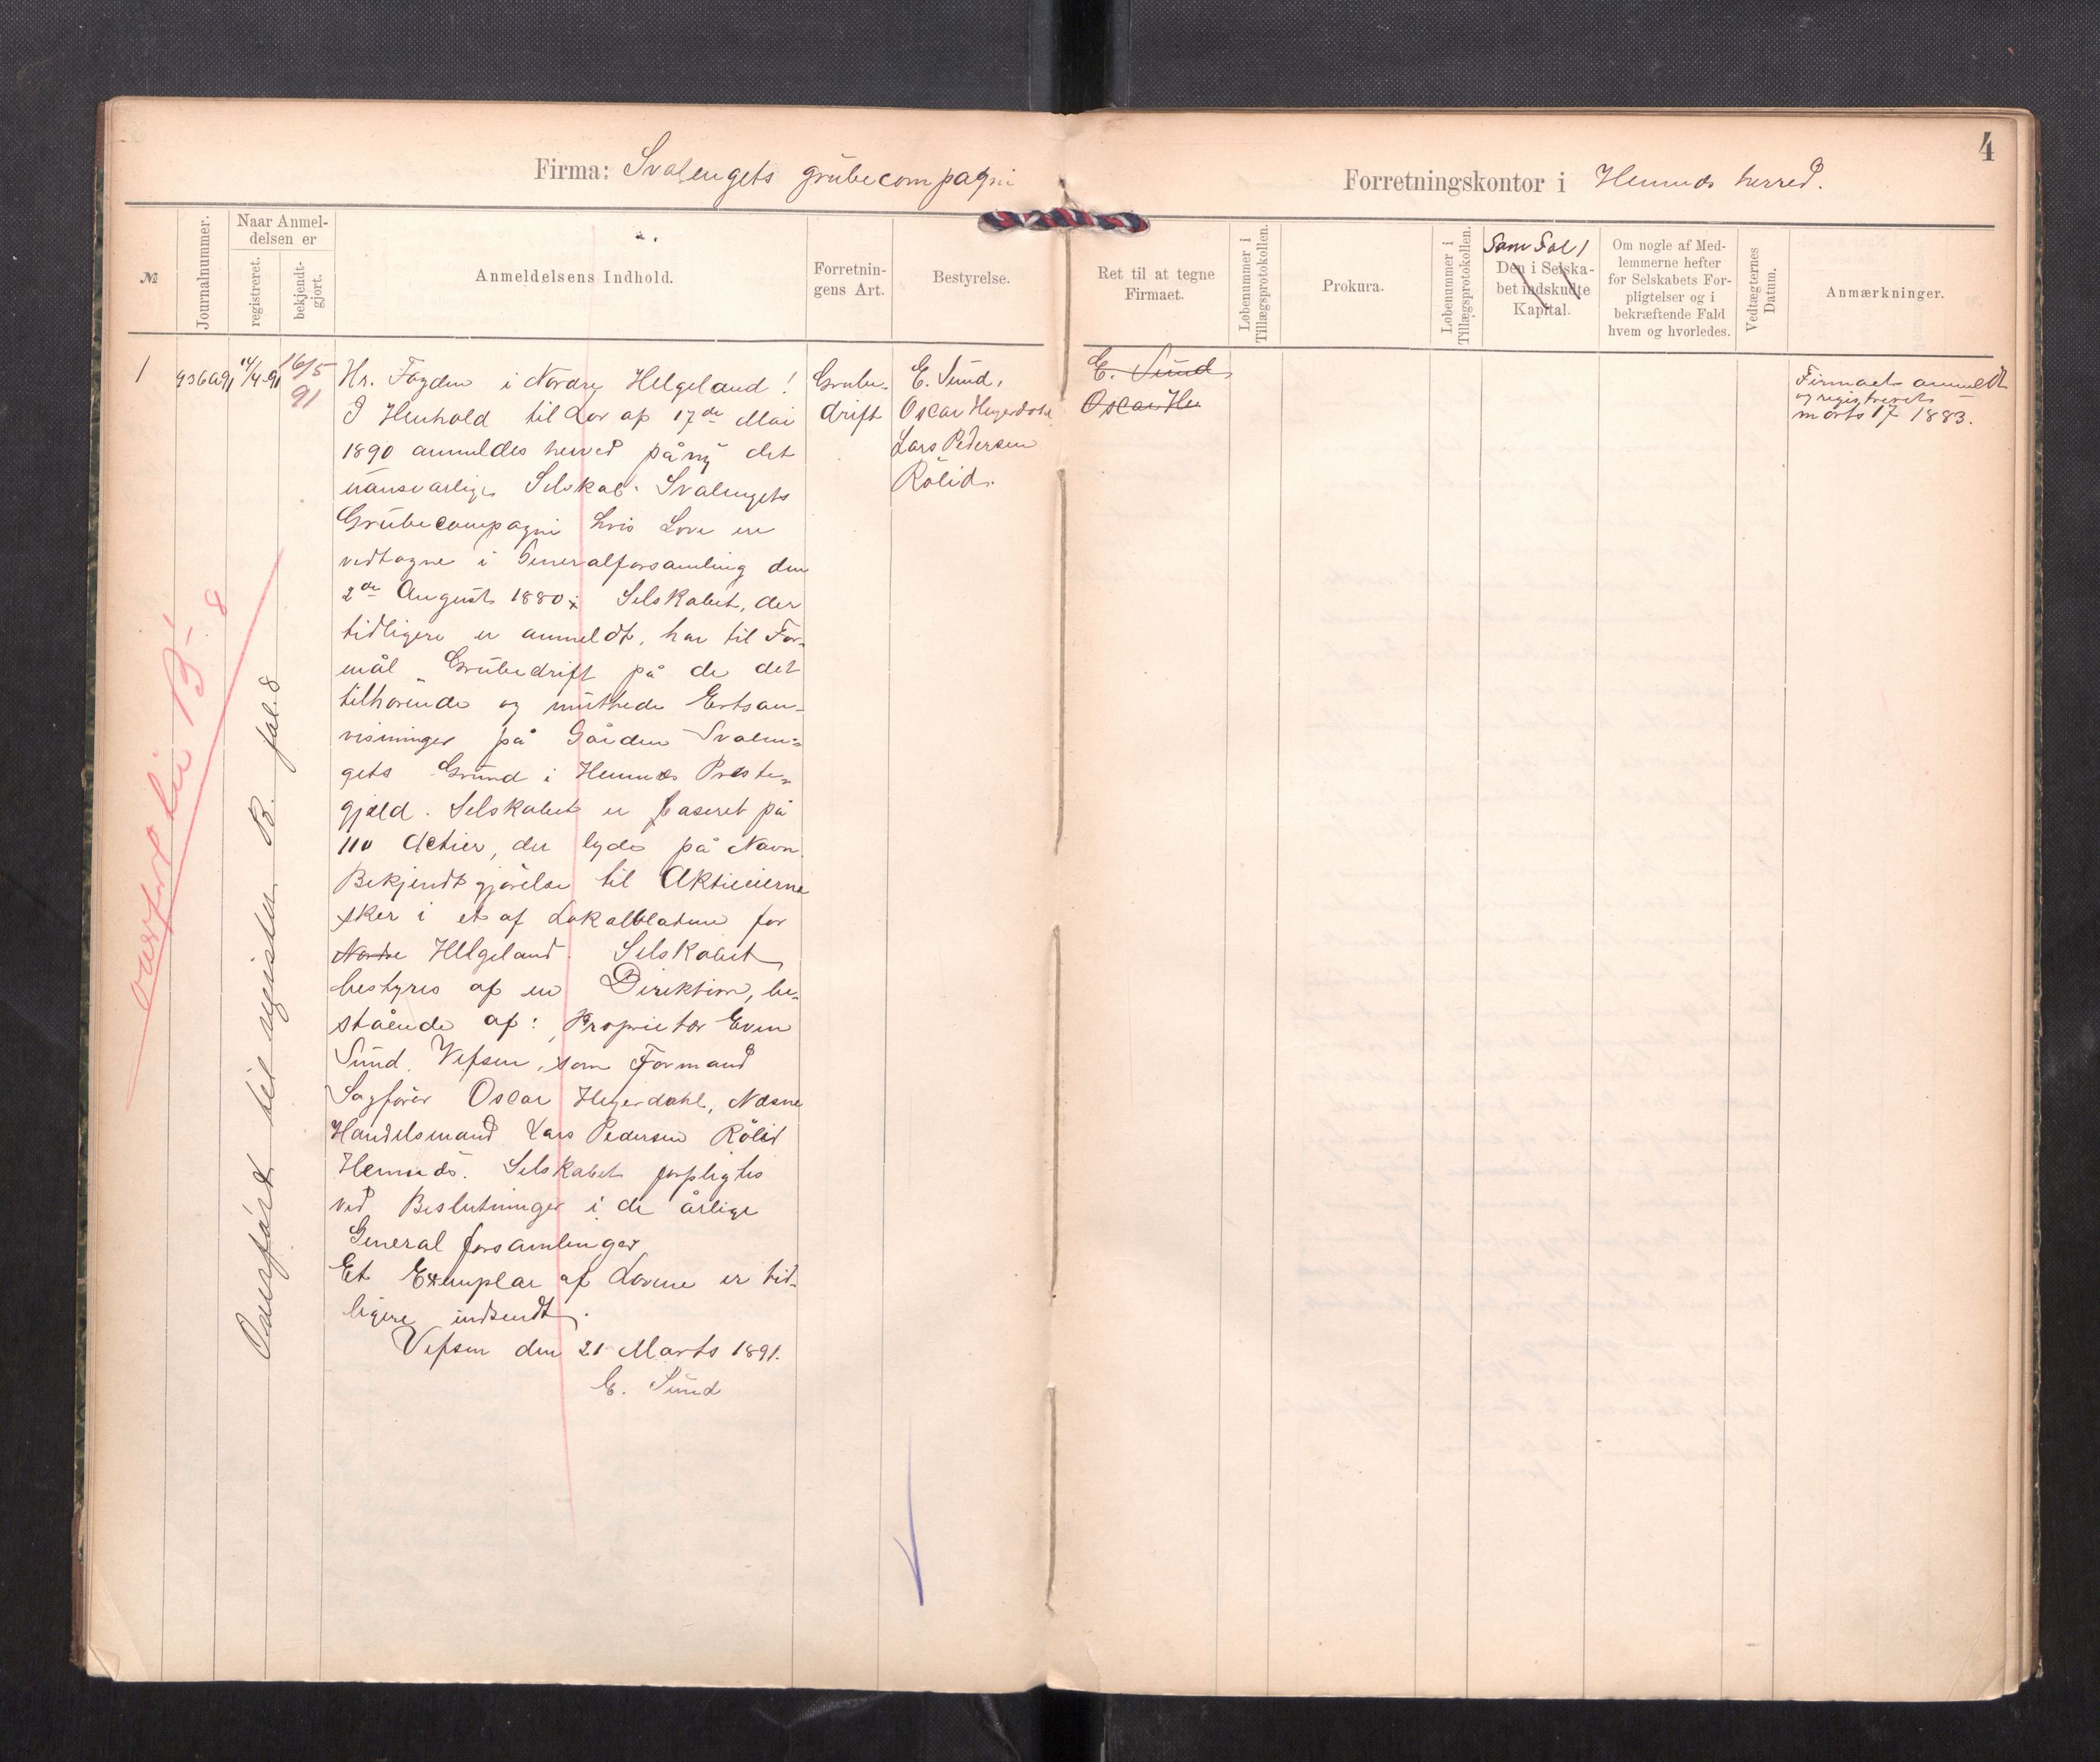 4
Firma: Svalengets grübecompagni
Forretningskontor i Hemnæs herred.
№
Journalnummer.
Naar Anmel-
delsen er
registreret.
bekjendt-
gjort.
Anmeldelsens Indhold.
Forretnin-
gens Art.
Bestyrelse.
Ret til at tegne
Firmaet.
Løbenummer i
Tillægsprotokollen.
Prokura.
Løbenummer i
Tillægsprotokollen.
Sam Fol 1
Den i Selska-
bet indskudte
Kapital.
Om nogle af Med-
lemmerne hefter
for Selskabets For-
pligtelser og i
bekræftende Fald
hvem og hvorledes.
Vedtægternes
Datum.
Anmærkninger.
1
14/4 91
16/5
91
Hr. Fogden i Nordre Helgeland!
I Henhold til Lov af 17de Mai
1890 anmeldes herved påny det
uansvarlige Selskab: Svalengets
Grübecompagni hvis Love ere
vedtagne i Generalforsamling den
2den August 1880; Selskabet, der
tidligere er anmeldt, har til For-
mål Grübedrift på de det
tilhørende og müthede Ertsan-
visninger på Gården Svalen-
gets Grund i Hemnæs Præste-
gjæld. Selskabet er baseret på
110 Actier, der lyde på Navn.
Bekjendtgjørelse til Aktieeierne
sker i et af Lokalbladene for
Nordre Helgeland. Selskabet
bestyres af en Direktion, be-
stående af: Proprietær Even
Sünd, Vefsen, som Formand
Sagfører Oscar Hejerdahl, Næsne
Handelsmand Lars Pedersen Rölid
Hemnæs. Selskabet forpligtes
ved Beslutninger i de årlige
Generalforsamlinger
Et Exemplar af Lovene er tid-
ligere indsendt.
Vefsen den 21 Marts 1891.
E. Sünd
Grube-
drift
E. Sünd,
Oscar Hejerdahl
Lars Pedersen
Rölid.
E. Sünd
Oscar He
Firmaet anmeldt
og registreret
marts 17 1883.
overført til B. 8
Overført til register B. fol. 8